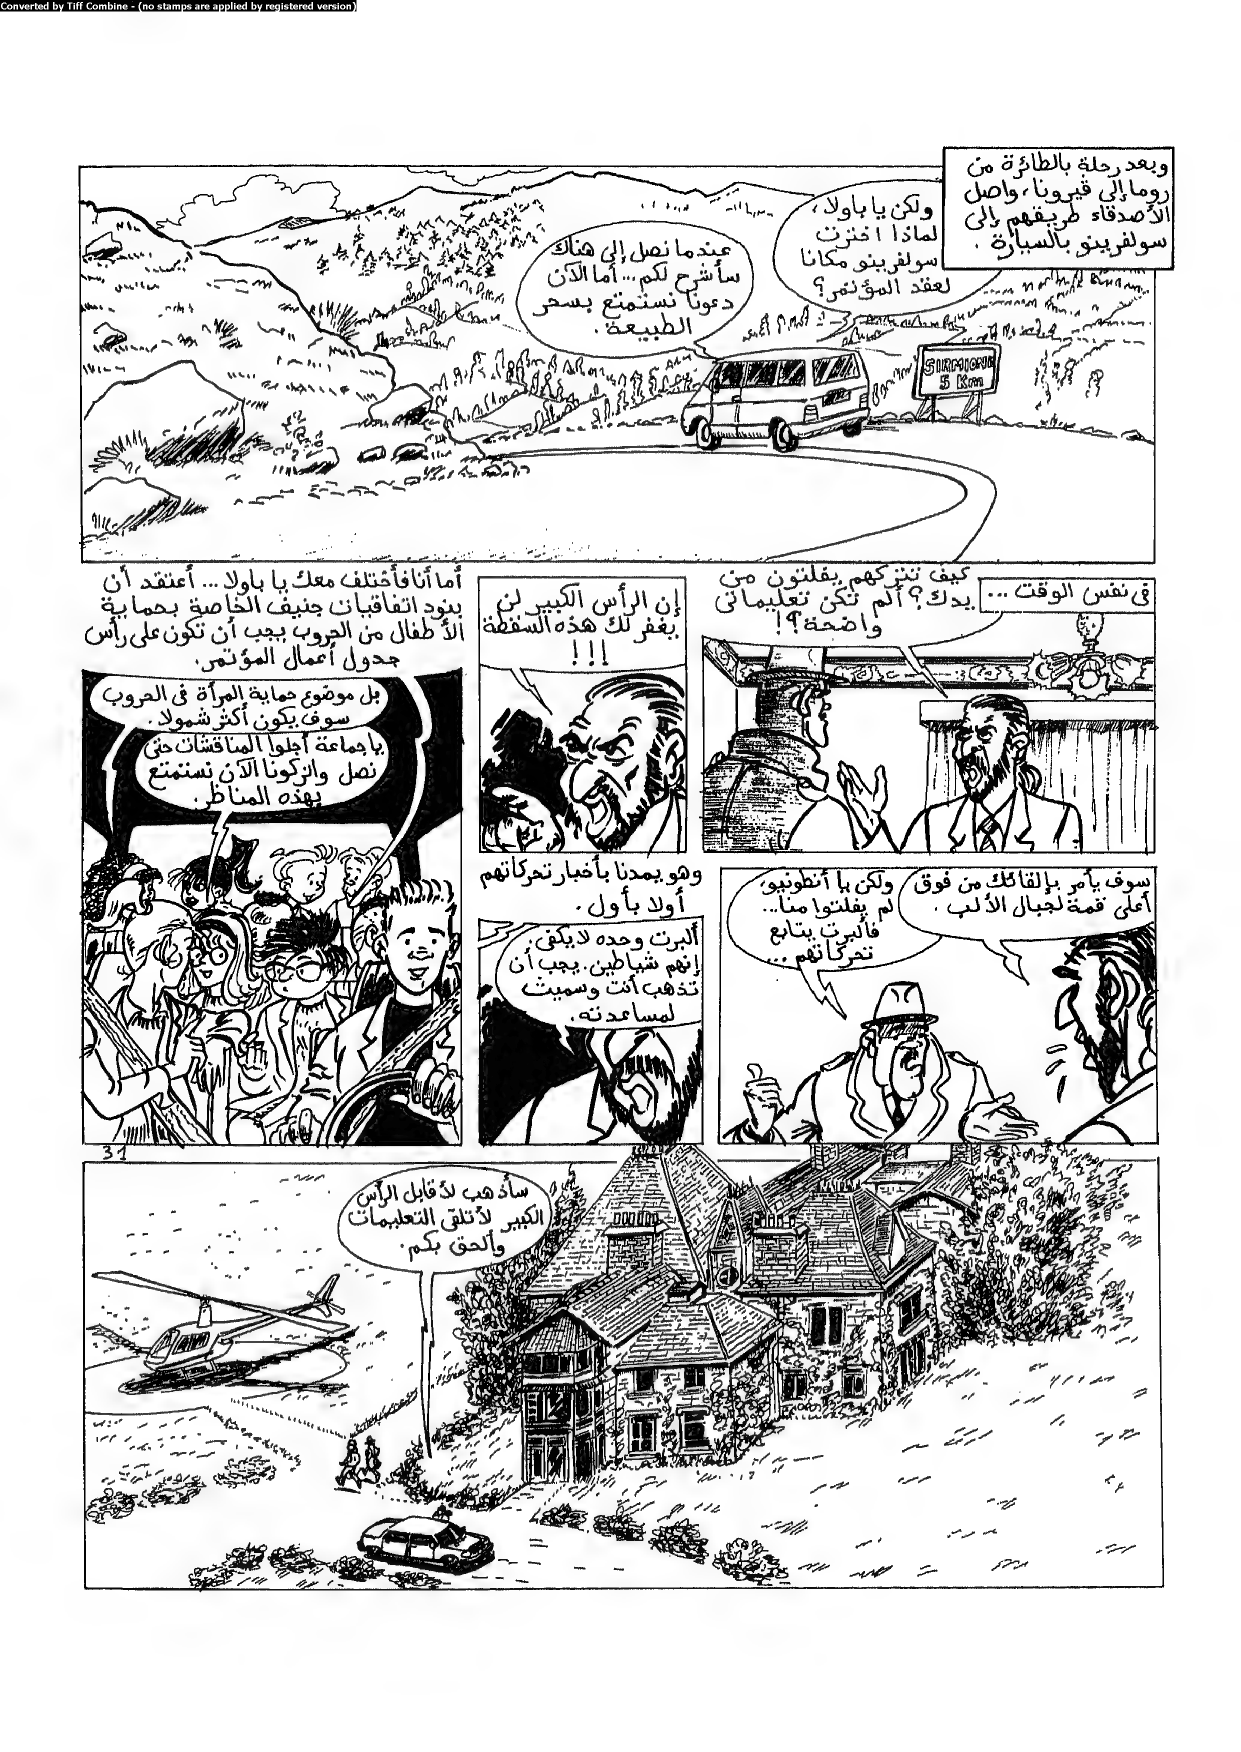 Converted by Tiff Combine - (no stamps are applied by registered version)
وبعد رحلة بالطائرة من
روما إلى ڤيرونا، واصل
الأصدقاء طريقهم إلى
سولفرينو بالسيارة.
ولكن يا باولا،
لماذا اخترت
سولفرينو مكانا
لعقد المؤتمر؟
عندما نصل إلى هناك
سأشرح لكم... أما الآن
دعونا نستمتع بسحر
الطبيعة.
SIRMIONE
5 Km
فى نفس الوقت ...
كيف تتركهم يفلتون من
يدك؟ ألم تكن تعليماتى
واضحة؟!
إن الرأس الكبير لن
يغفر لك هذه السقطة
!!!
أما أنا فأختلف معك يا باولا... أعتقد أن
بنود اتفاقيات جنيف الخاصة بحماية
الأطفال من الحروب يجب أن تكون على رأس
جدول أعمال المؤتمر.
بل موضوع حماية المرأة فى الحروب
سوف يكون أكثر شمولا.
يا جماعة أجلوا المناقشات حتى
نصل واتركونا الآن نستمتع
بهذه المناظر.
سوف يأمر بإلقائك من فوق
أعلى قمة لجبال الألب.
ولكن يا أنطونيو،
لم يفلتوا منا...
فألبرت يتابع
تحركاتهم...
وهو يمدنا بأخبار تحركاتهم
أولا بأول.
ألبرت وحده لا يكفى.
إنهم شياطين. يجب أن
تذهب أنت وسميث
لمساعدته.
31
سأذهب لأقابل الرأس
الكبير لأتلقى التعليمات
وألحق بكم.